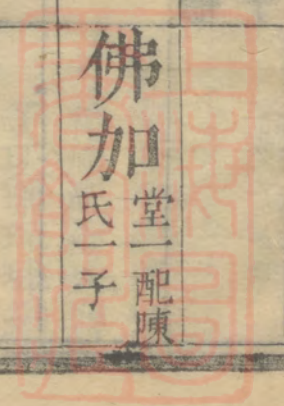 佛加
堂一配陳
氏一子